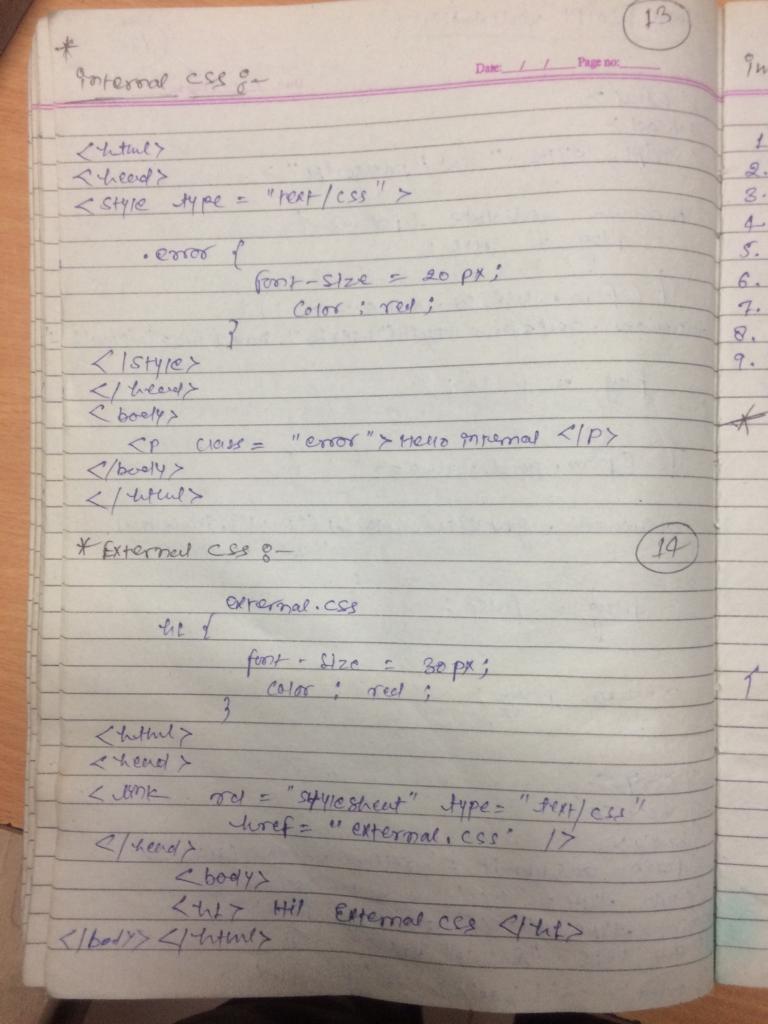 13
*
Internal CSS :-
Date: / / Page no:
<html>
<head>
<style type = "text/css" >
.error {
font-size = 20 px;
color ; red ;
}
</style>
</head>
<body>
<p class = "error"> Hello internal </p>
</body>
</html>
* External CSS :-
14
external.css
h1 {
font - size = 30 px ;
color ; red ;
}
<html>
<head>
<link rel = "stylesheet" type = "text/css"
href = "external.css" />
</head>
<body>
<h1> Hi! External CSS </h1>
</body> </html>
In
1
2.
3.
4.
5.
6.
7.
8.
9.
*